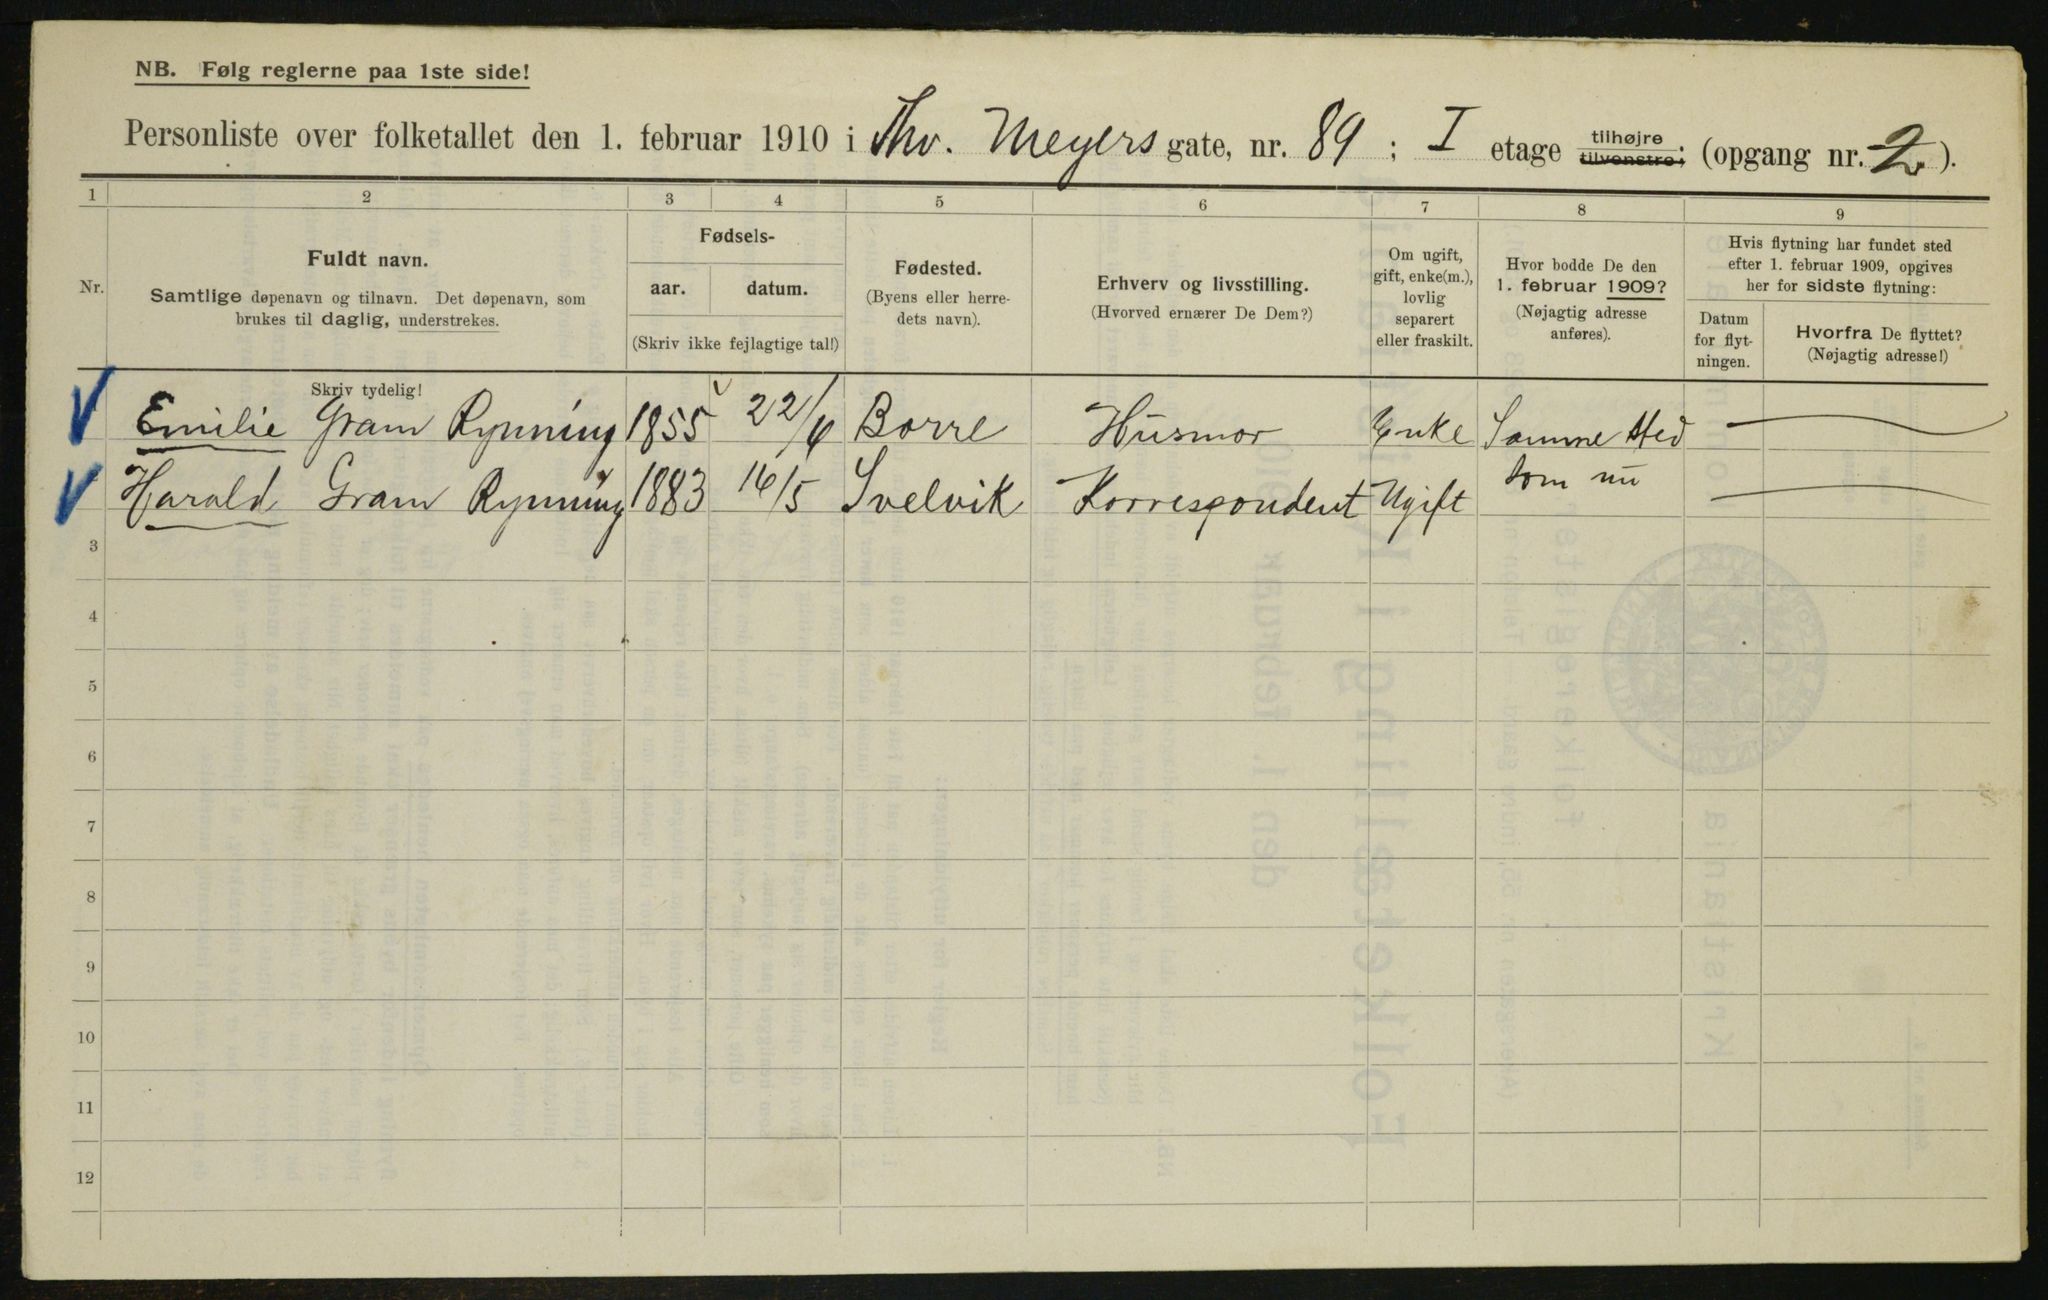 NB. Følg reglerne paa 1ste side!
Personliste over folketallet den 1. februar 1910 i Thv. Meyers gate, nr. 89 ; I etage tilhøjre tilvenstre; (opgang nr. 2.).
1 2 3 4 5 6 7 8 9
Nr.
Fuldt navn.
Samtlige døpenavn og tilnavn. Det døpenavn, som
brukes til daglig, understrekes.
Fødsels-
aar. datum.
(Skriv ikke fejlagtige tal!)
Fødested.
(Byens eller herre-
dets navn).
Erhverv og livsstilling.
(Hvorved ernærer De Dem?)
Om ugift,
gift, enke(m.),
lovlig
separert
eller fraskilt.
Hvor bodde De den
1. februar 1909?
(Nøjagtig adresse
anføres).
Hvis flytning har fundet sted
efter 1. februar 1909, opgives
her for sidste flytning:
Datum
for flyt-
ningen.
Hvorfra De flyttet?
(Nøjagtig adresse!)
Skriv tydelig!
Emilie Gram Rynning 1855 22/6 Borre Husmor Enke Samme sted
Harald Gram Rynning 1883 16/5 Svelvik Korrespondent Ugift som nu
3
4
5
6
7
8
9
10
11
12